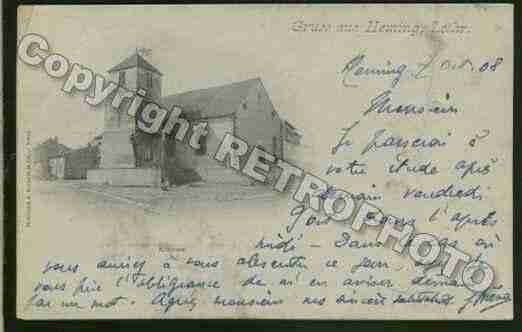 Gruss aus Heming, Lothr.
Heming 7 Oct. 08
Monsieur
Je passerai à
votre étude après
demain vendredi
dans l'après
midi - Dans le cas où
vous auriez à vous absenter ce jour,
vous prie l'obligeance de m'en aviser demain
par un mot. Agréez monsieur mes sincères salutations
Copyright RETROPHOTO